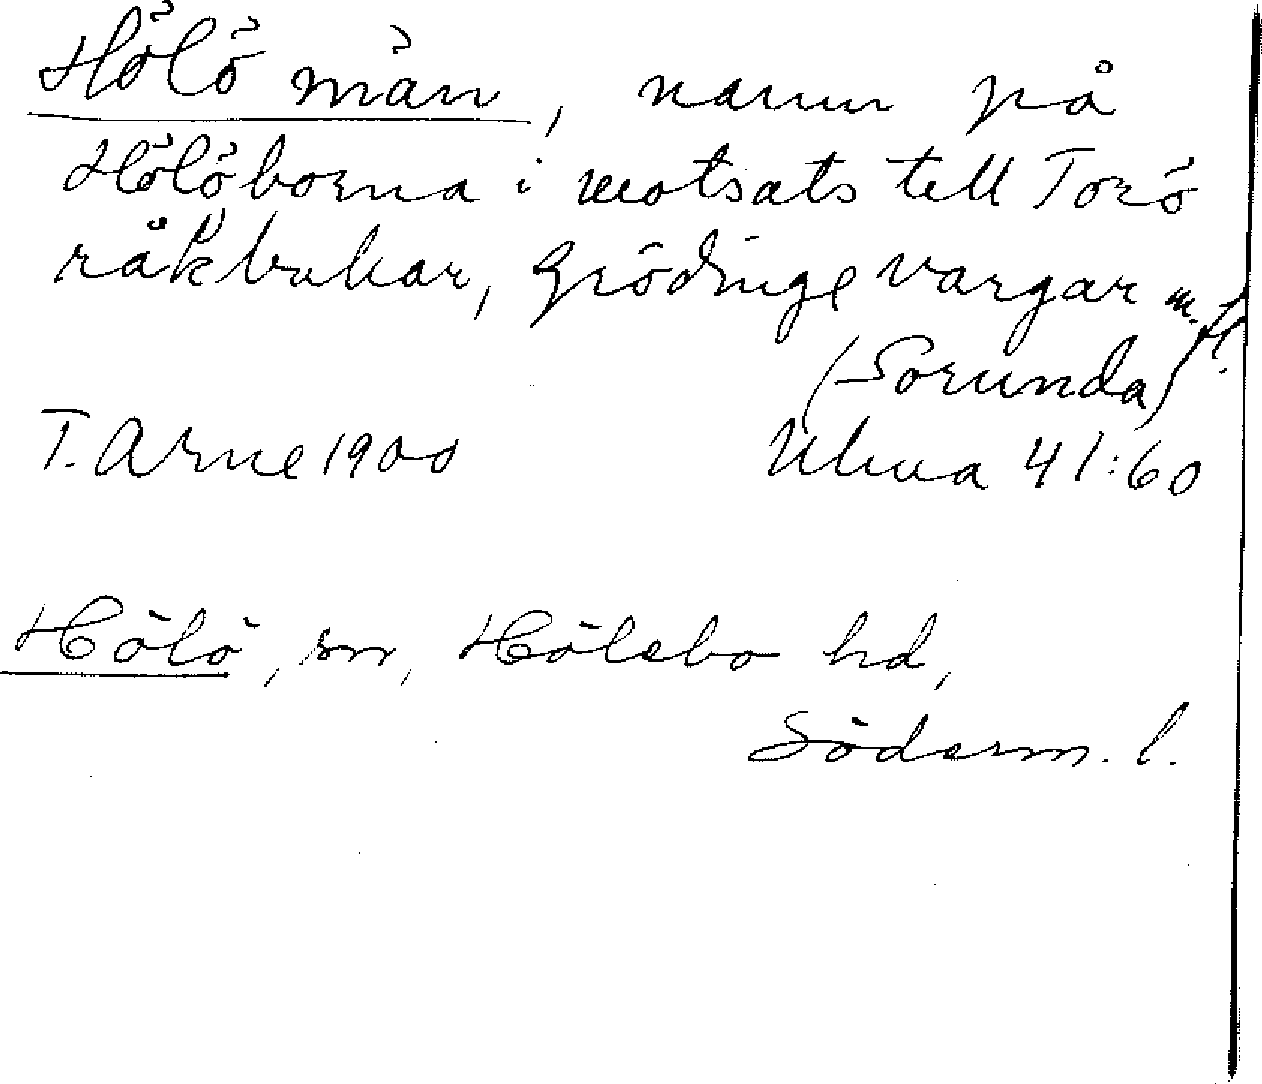 Hölö män, namn på
Hölöborna i motsats till Torö
råkbukar, Grödinge vargar m.fl.
(Sorunda)
T. Arne 1900 Ulma 41:60
Hölö, sn, Hölebo hd,
Söderm. l.